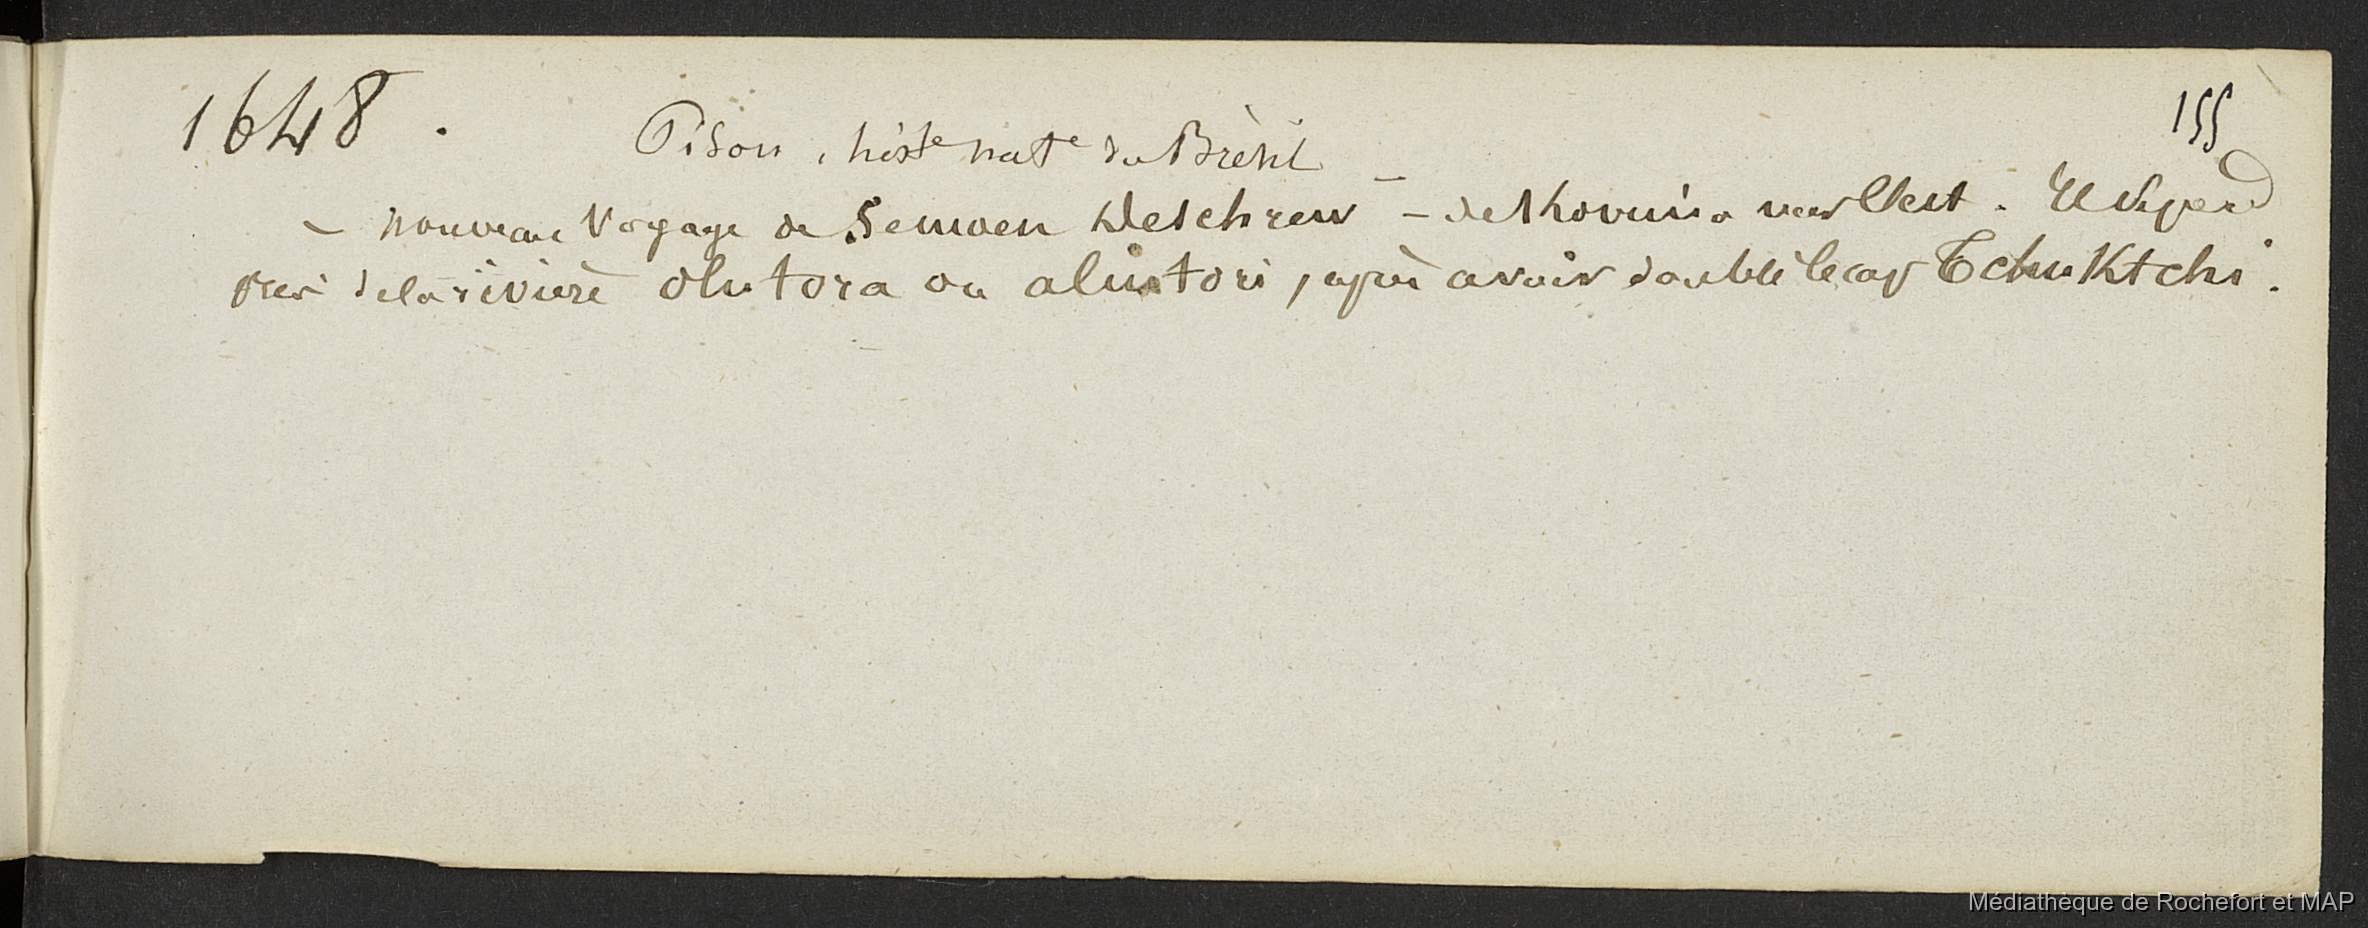 155
1648 . Pison, histe nate du Brésil –
– nouveau Voyage de Semoen Deschrew – de Kovima vers l'Est . Il se perd
près de la rivière Olutora ou alutori, après avoir doublé le cap Tchuktchi .
Médiathèque de Rochefort et MAP